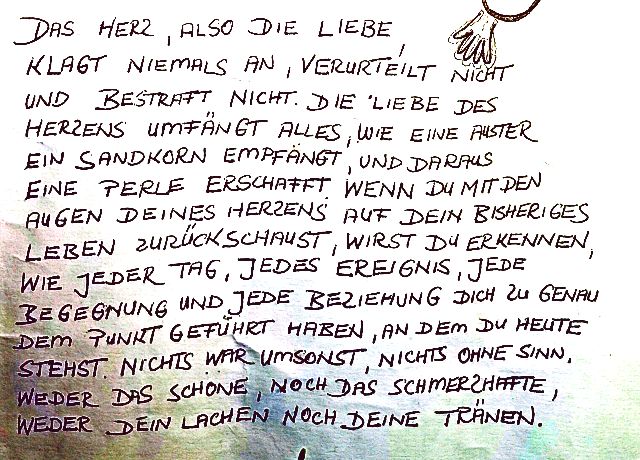 DAS HERZ, ALSO DIE LIEBE,
KLAGT NIEMALS AN, VERURTEILT NICHT
UND BESTRAFT NICHT. DIE LIEBE DES
HERZENS UMFÄNGT ALLES, WIE EINE AUSTER
EIN SANDKORN EMPFÄNGT, UND DARAUS
EINE PERLE ERSCHAFFT. WENN DU MIT DEN
AUGEN DEINES HERZENS AUF DEIN BISHERIGES
LEBEN ZURÜCKSCHAUST, WIRST DU ERKENNEN,
WIE JEDER TAG, JEDES EREIGNIS, JEDE
BEGEGNUNG UND JEDE BEZIEHUNG DICH ZU GENAU
DEM PUNKT GEFÜHRT HABEN, AN DEM DU HEUTE
STEHST. NICHTS WAR UMSONST, NICHTS OHNE SINN.
WEDER DAS SCHÖNE, NOCH DAS SCHMERZHAFTE,
WEDER DEIN LACHEN NOCH DEINE TRÄNEN.